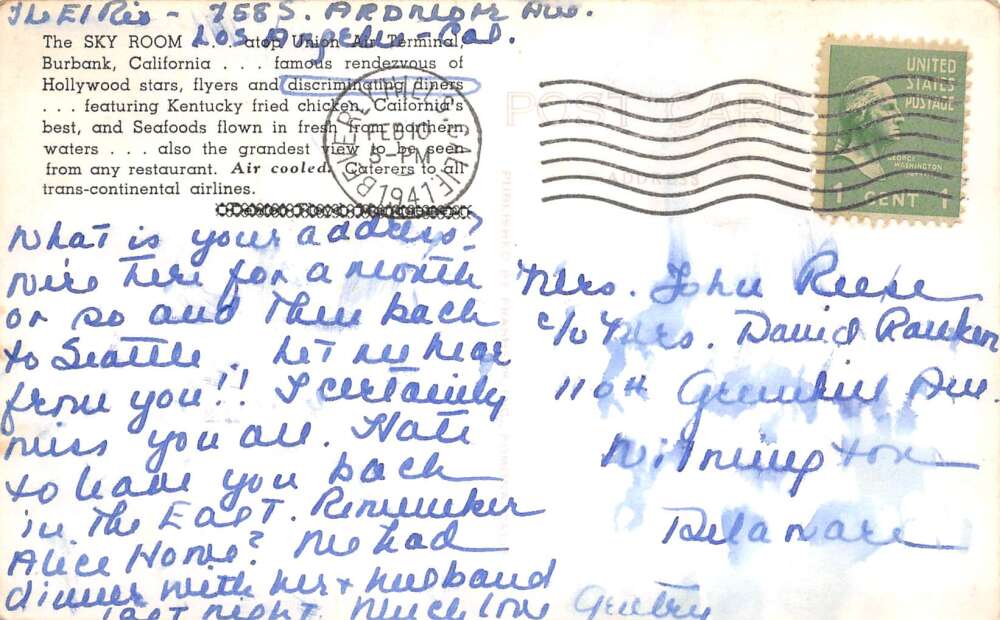 The El Rio - 758 S. ARDMORE Ave.
Los Angeles - Cal.
The SKY ROOM . . . atop Union Air Terminal,
Burbank, California . . . famous rendezvous of
Hollywood stars, flyers and discriminating diners
. . . featuring Kentucky fried chicken, California's
best, and Seafoods flown in fresh from northern
waters . . . also the grandest view to be seen
from any restaurant. Air cooled. Caterers to all
trans-continental airlines.
What is your address?
We're here for a month
or so and then back
to Seattle. Let me hear
from you!! I certainly
miss you all. Hate
to have you back
in the East. Remember
Alice Howe? We had
dinner with her + husband
last night. Much love Gentry
POST CARD
ADDRESS
FEB 10
5-PM
1941
CALIF.
UNITED
STATES
POSTAGE
GEORGE
WASHINGTON
1 CENT 1
Mrs. John Reese
c/o Mrs. David Rankin
1104 Greenhill Ave.
Wilmington
Delaware